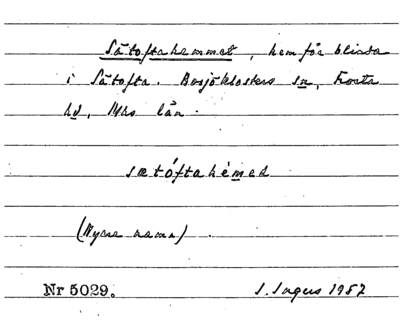 Sätoftahemmet, hem för blinda
i Sätofta. Bosjöklosters sn, Frosta
hd, Mhs län.
sætóftahèmed
(Nyare namn).
Nr 5029. I. Ingers 1957